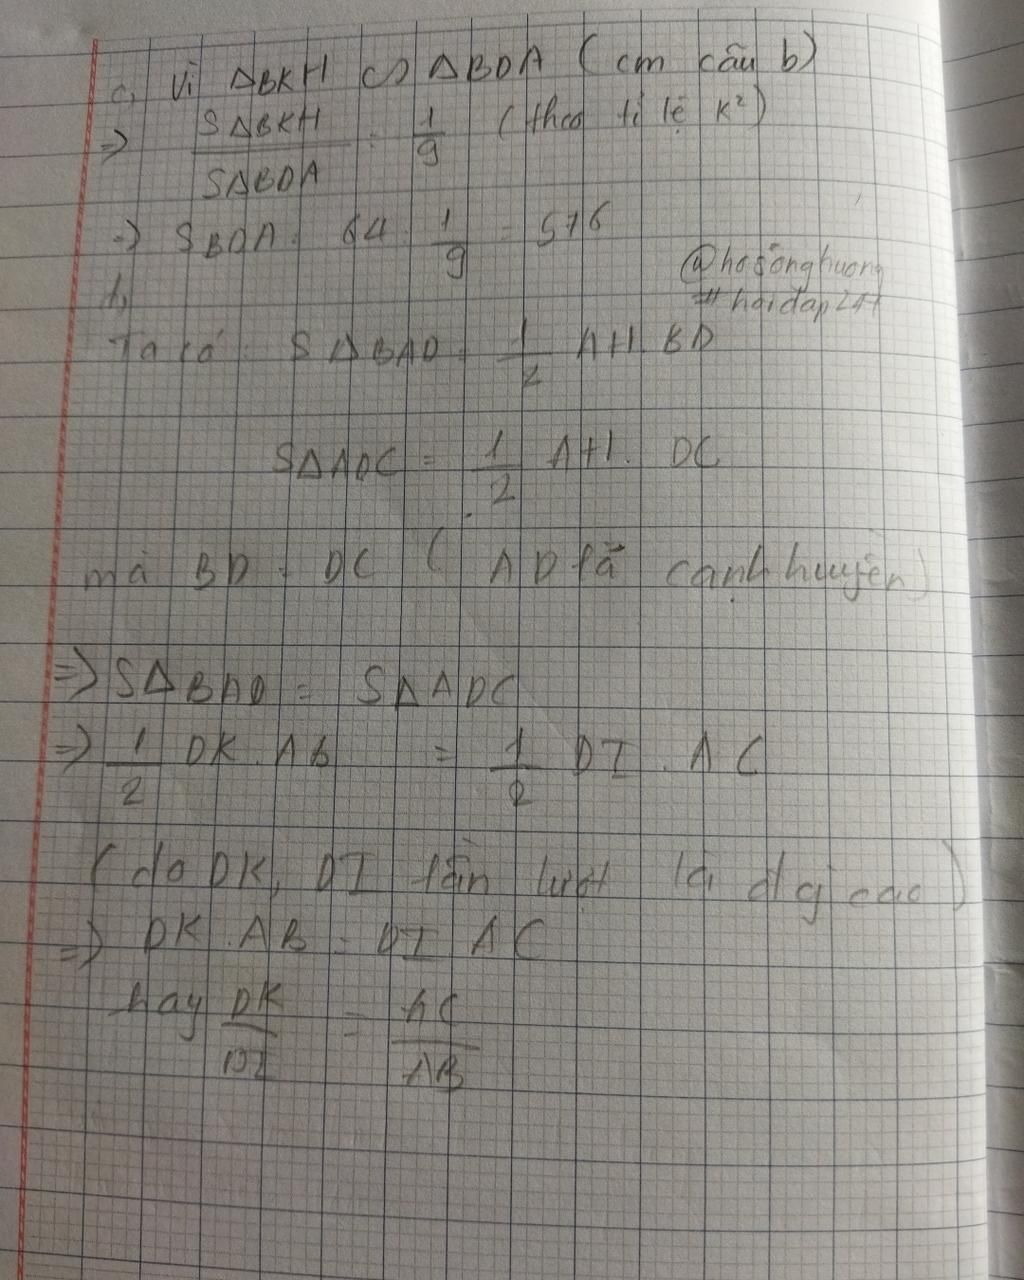 c, Vì ΔBKH ∽ ΔBDA (cm câu b)
=> SΔBKH / SΔBDA = 1/9 (theo tỉ lệ K²)
=> SBDA = 64 . 1/9 = 576
@hosonghuong
#hoidap247
Ta có: SΔBAD = 1/2 AH. BD
SΔADC = 1/2 AH. DC
mà BD = DC ( AD là cạnh huyền)
=> SΔBAD = SΔADC
=> 1/2 DK . AB = 1/2 DI . AC
(do DK, DI lần lượt là đg cao)
=> DK . AB = DI AC
hay DK/DI = AC/AB